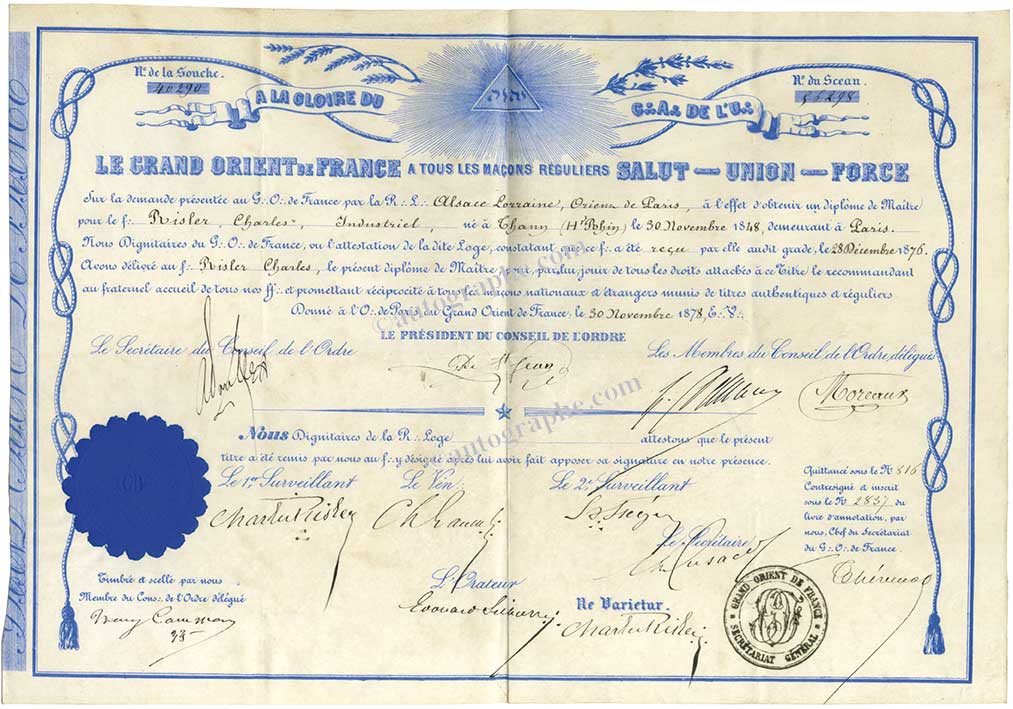 Nº de la Souche.
40290
Nº du Sceau.
A LA GLOIRE DU
יהוה
G∴ A∴ DE L'U∴
LE GRAND ORIENT DE FRANCE A TOUS LES MAÇONS RÉGULIERS SALUT — UNION — FORCE
Sur la demande présentée au G∴ O∴ de France par la R∴ L∴ Alsace Lorraine, Orient de Paris, à l'effet d'obtenir un diplôme de Maître
pour le f∴ Risler, Charles, Industriel, né à Thann (Ht Rhin) le 30 Novembre 1848, demeurant à Paris.
Nous Dignitaires du G∴ O∴ de France, vu l'attestation de la dite Loge, constatant que ce f∴ a été reçu par elle audit grade, le 28 Décembre 1876.
Avons délivré au f∴ Risler Charles, le présent diplôme de Maître pour, par lui, jouir de tous les droits attachés à ce Titre le recommandant
au fraternel accueil de tous nos ff∴ et promettant réciprocité à tous les maçons nationaux et étrangers munis de titres authentiques et réguliers
Donné à l'O∴ de Paris, au Grand Orient de France, le 30 Novembre 1878, E∴ V∴
LE PRÉSIDENT DU CONSEIL DE L'ORDRE
Le Secrétaire du Conseil de l'Ordre
Les Membres du Conseil de l'Ordre délégué
De St Jean
Moreaux
Nous Dignitaires de la R∴ Loge attestons que le présent
titre a été remis par nous au f∴ y désigné après lui avoir fait apposer sa signature en notre présence.
Le 1er Surveillant
Le Vén∴
Le 2e Surveillant
Charles Risler
Quittancé sous le Nº 816
Contresigné et inscrit
sous le Nº 2837 du
livre d'annotation, par
nous, Chef du Secrétariat
du G∴ O∴ de France.
Thévenot
Le Secrétaire
Timbré et scellé par nous
Membre du Cons∴ de l'Ordre délégué
33
L'Orateur
Edouard
Ne Varietur.
Charles Risler
GRAND ORIENT DE FRANCE
SECRÉTARIAT GÉNÉRAL
©autographe.com
©autographe.com